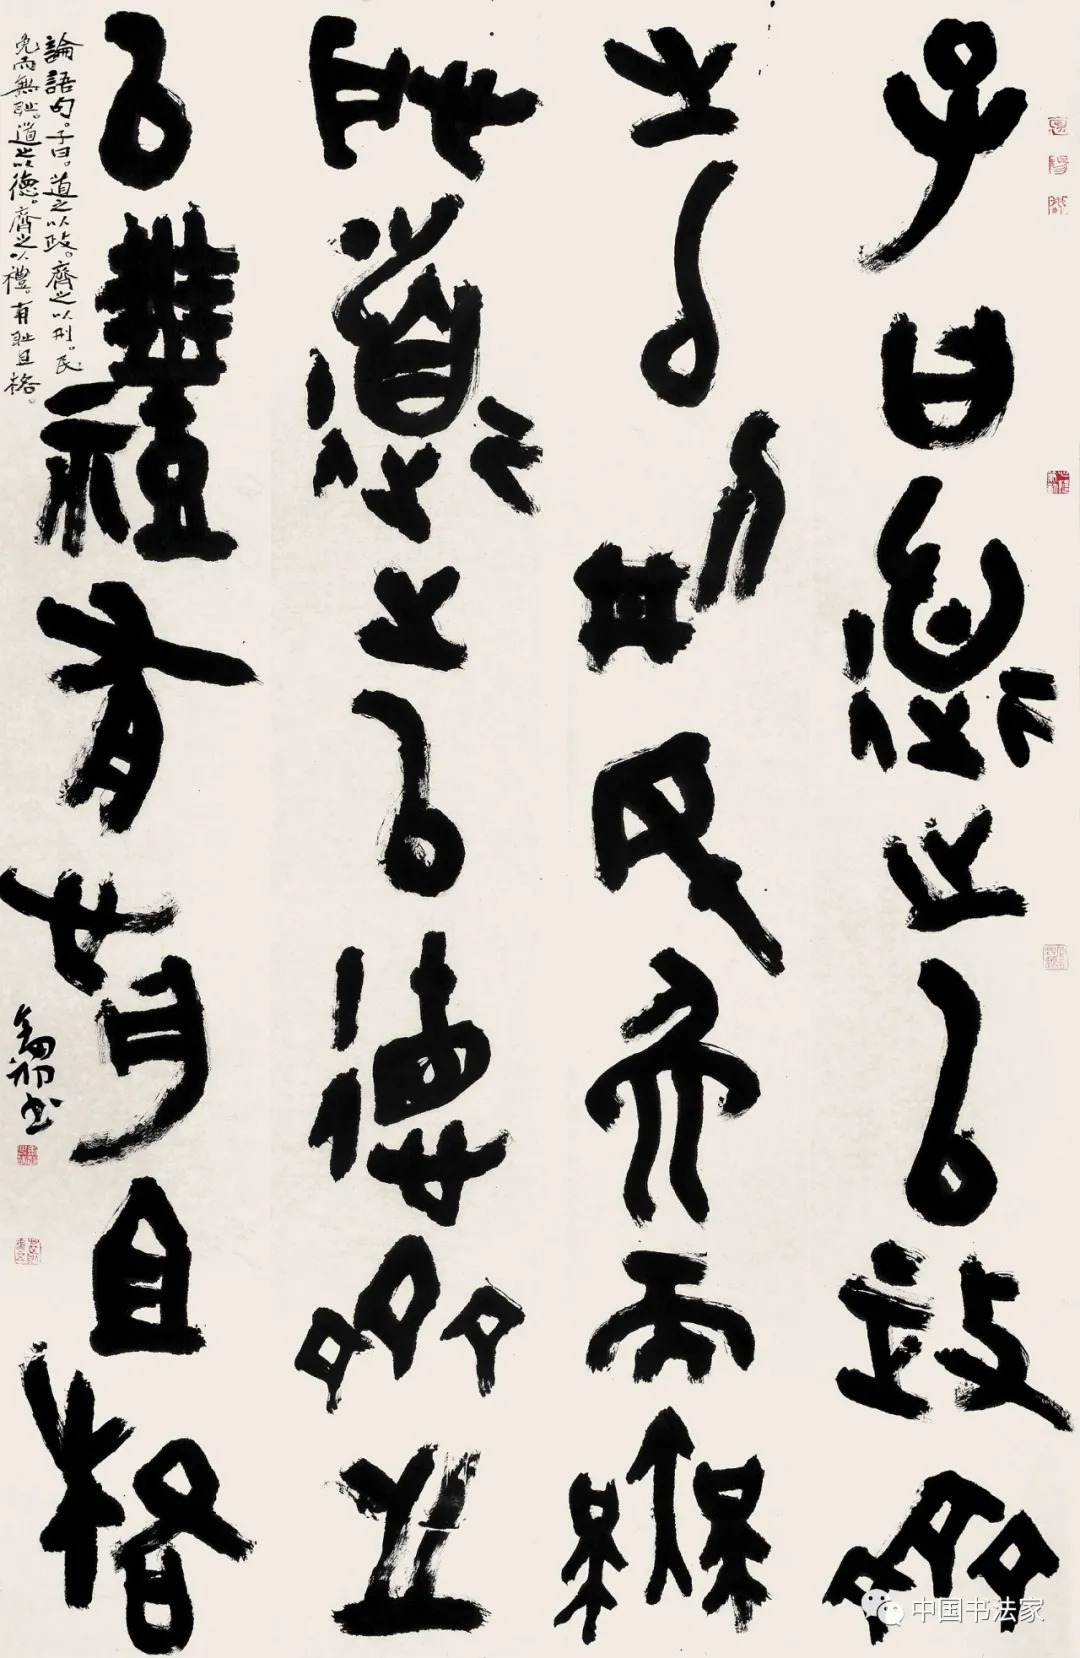 子曰道之以政齊
之以刑民免而無
恥道之以德齊之
以禮有恥且格
論語句。子曰。道之以政。齊之以刑。民
免而無恥。道之以德。齊之以禮。有恥且格。
書
中国书法家